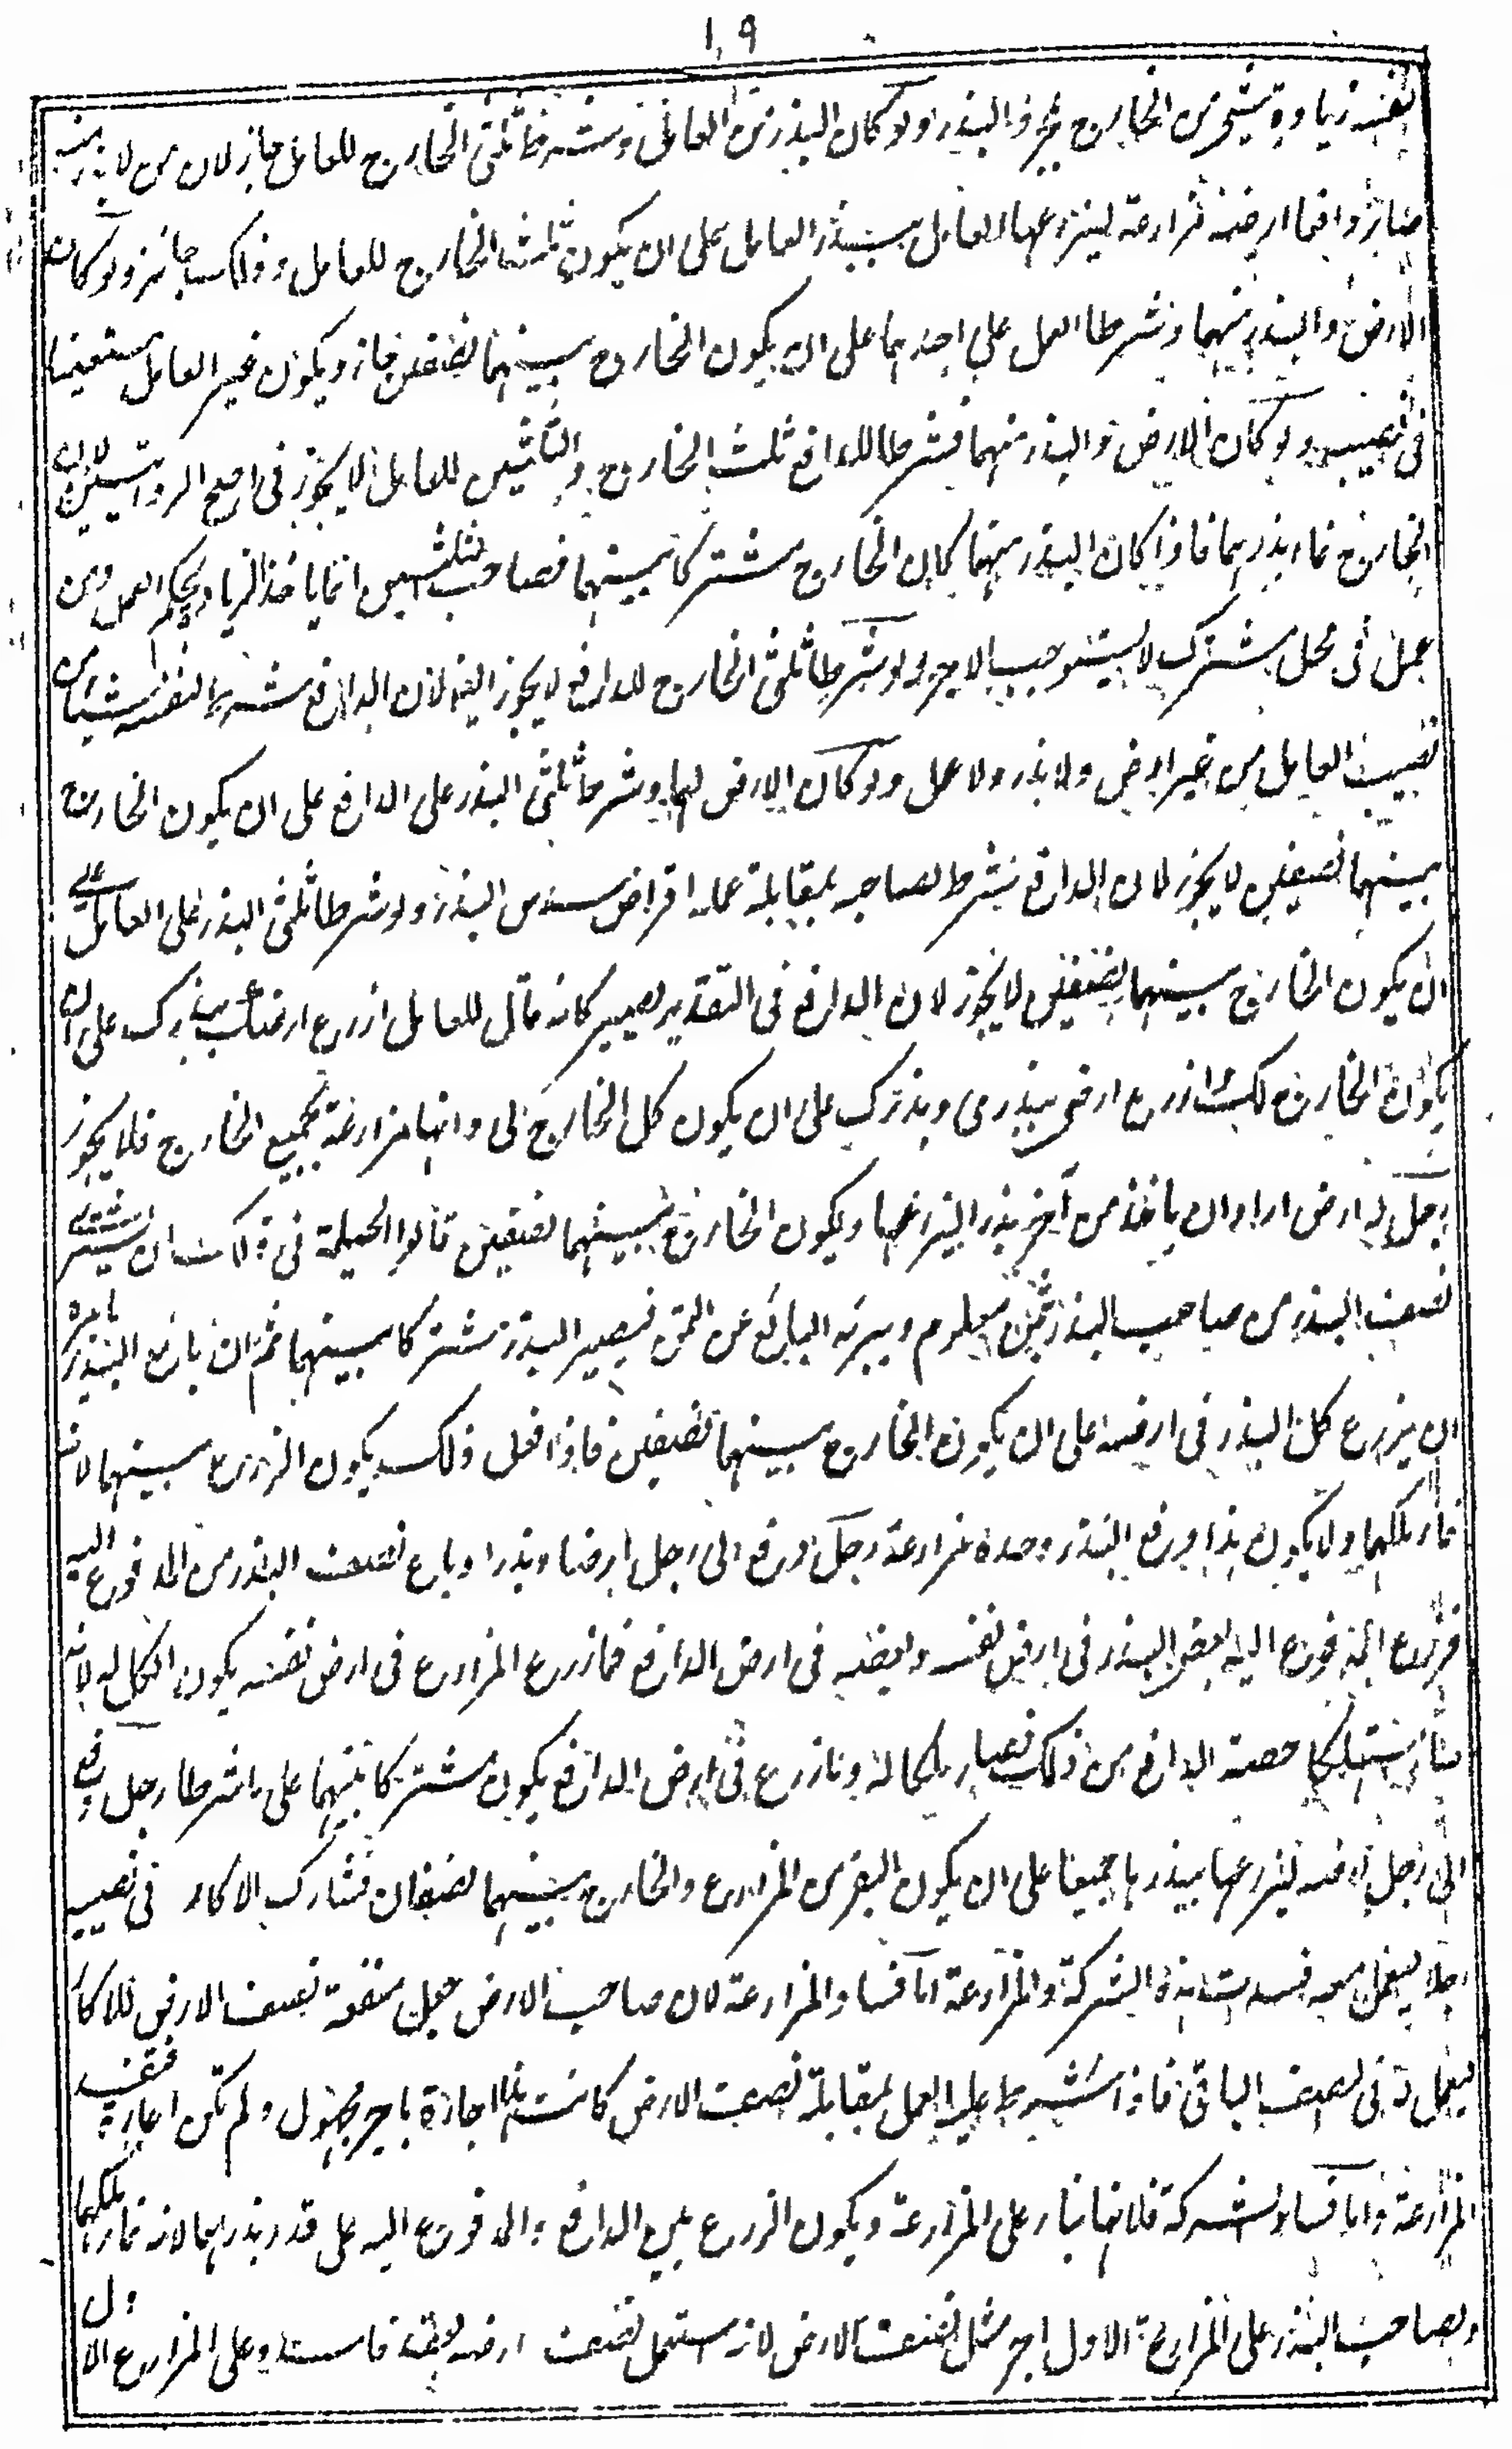 ١٠٩
لنفسه زيادة شيء من الخارج بمجرد البذر ولو كان البذر من العامل وشرطا ثلثى الخارج للعامل جاز لان من لا بذر منه
صار دافعا ارضه مزارعة ليزرعها العامل ببذر العامل على ان يكون ثلثا الخارج للعامل وذلك جائز ولو كان
الارض والبذر منهما وشرطا العمل على احدهما على ان يكون الخارج بينهما نصفين جاز ويكون غير العامل مستعينا
فى نصيبه ولو كان الارض والبذر منهما فشرطا للدافع ثلث الخارج والثلثين للعامل لا يجوز فى اصح الروايتين لان
الخارج نماء بذرهما فاذا كان البذر منهما كان الخارج مشتركا بينهما فصاحب الثلثين انما ياخذ الزيادة بحكم العمل ومن
عمل فى محل مشترك لا يستوجب الاجر ولو شرطا ثلثى الخارج للدافع لا يجوز ايضا لان الدافع شرط لنفسه شيئا من
نصيب العامل من غير ارض ولا بذر ولا عمل ولو كان الارض لهما وشرطا ثلثى البذر على الدافع على ان يكون الخارج
بينهما نصفين لا يجوز لان الدافع شرط لصاحبه بمقابلة عمله اقراض سدس البذر ولو شرطا ثلثى البذر على العامل على
ان يكون الخارج بينهما نصفين لا يجوز لان الدافع فى التقدير يصير كانه قال للعامل ازرع ارضك ببذرك على ان
يكون الخارج لك وازرع ارضى ببذرى وبذرك على ان يكون كل الخارج لى وانها مزارعة بجميع الخارج فلا يجوز
رجل له ارض اراد ان ياخذ من آخر بذرا ليزرعها ويكون الخارج بينهما نصفين قالوا الحيلة فى ذلك ان يشترى
نصف البذر من صاحب البذر بثمن معلوم ويبرئه البائع عن الثمن فيصير البذر مشتركا بينهما ثم ان بائع البذر يامره
ان يزرع كل البذر فى ارضه على ان يكون الخارج بينهما نصفين فاذا فعل ذلك يكون الزرع بينهما لانه
نماء ملكهما ولا يكون هذا دفع البذر وحده مزارعة رجل دفع الى رجل ارضا وبذرا وباع نصف البذر من المدفوع اليه
فزرع المدفوع اليه بعض البذر فى ارض نفسه وبعضه فى ارض الدافع فما زرع المزارع فى ارض نفسه يكون الكل له لانه
صار مستهلكا حصة الدافع من ذلك فصار ملكا له وما زرع فى ارض الدافع يكون مشتركا بينهما على ما شرطا رجل دفع
الى رجل ارضه ليزرعها ببذرهما جميعا على ان يكون البقر من المزارع والخارج بينهما نصفان فشارك الاكار فى نصيبه
رجلا ليعمل معه فسدت هذه الشركة والمزارعة اما فساد المزارعة لان صاحب الارض جعل منفعة نصف الارض للاكار
ليعمل له فى النصف الباقى فاذا شرط عليه العمل بمقابلة نصف الارض كانت هذه اجارة باجر مجهول ولم تكن اعارة فتفسد
المزارعة واما فساد الشركة فلانها بناء على المزارعة ويكون الزرع بين الدافع والمدفوع اليه على قدر بذرهما لانه نماء ملكهما
ولصاحب البذر على المزارع الاول اجر مثل نصف الارض لانه استعمل نصف ارضه بعقد فاسد وعلى المزارع الاول